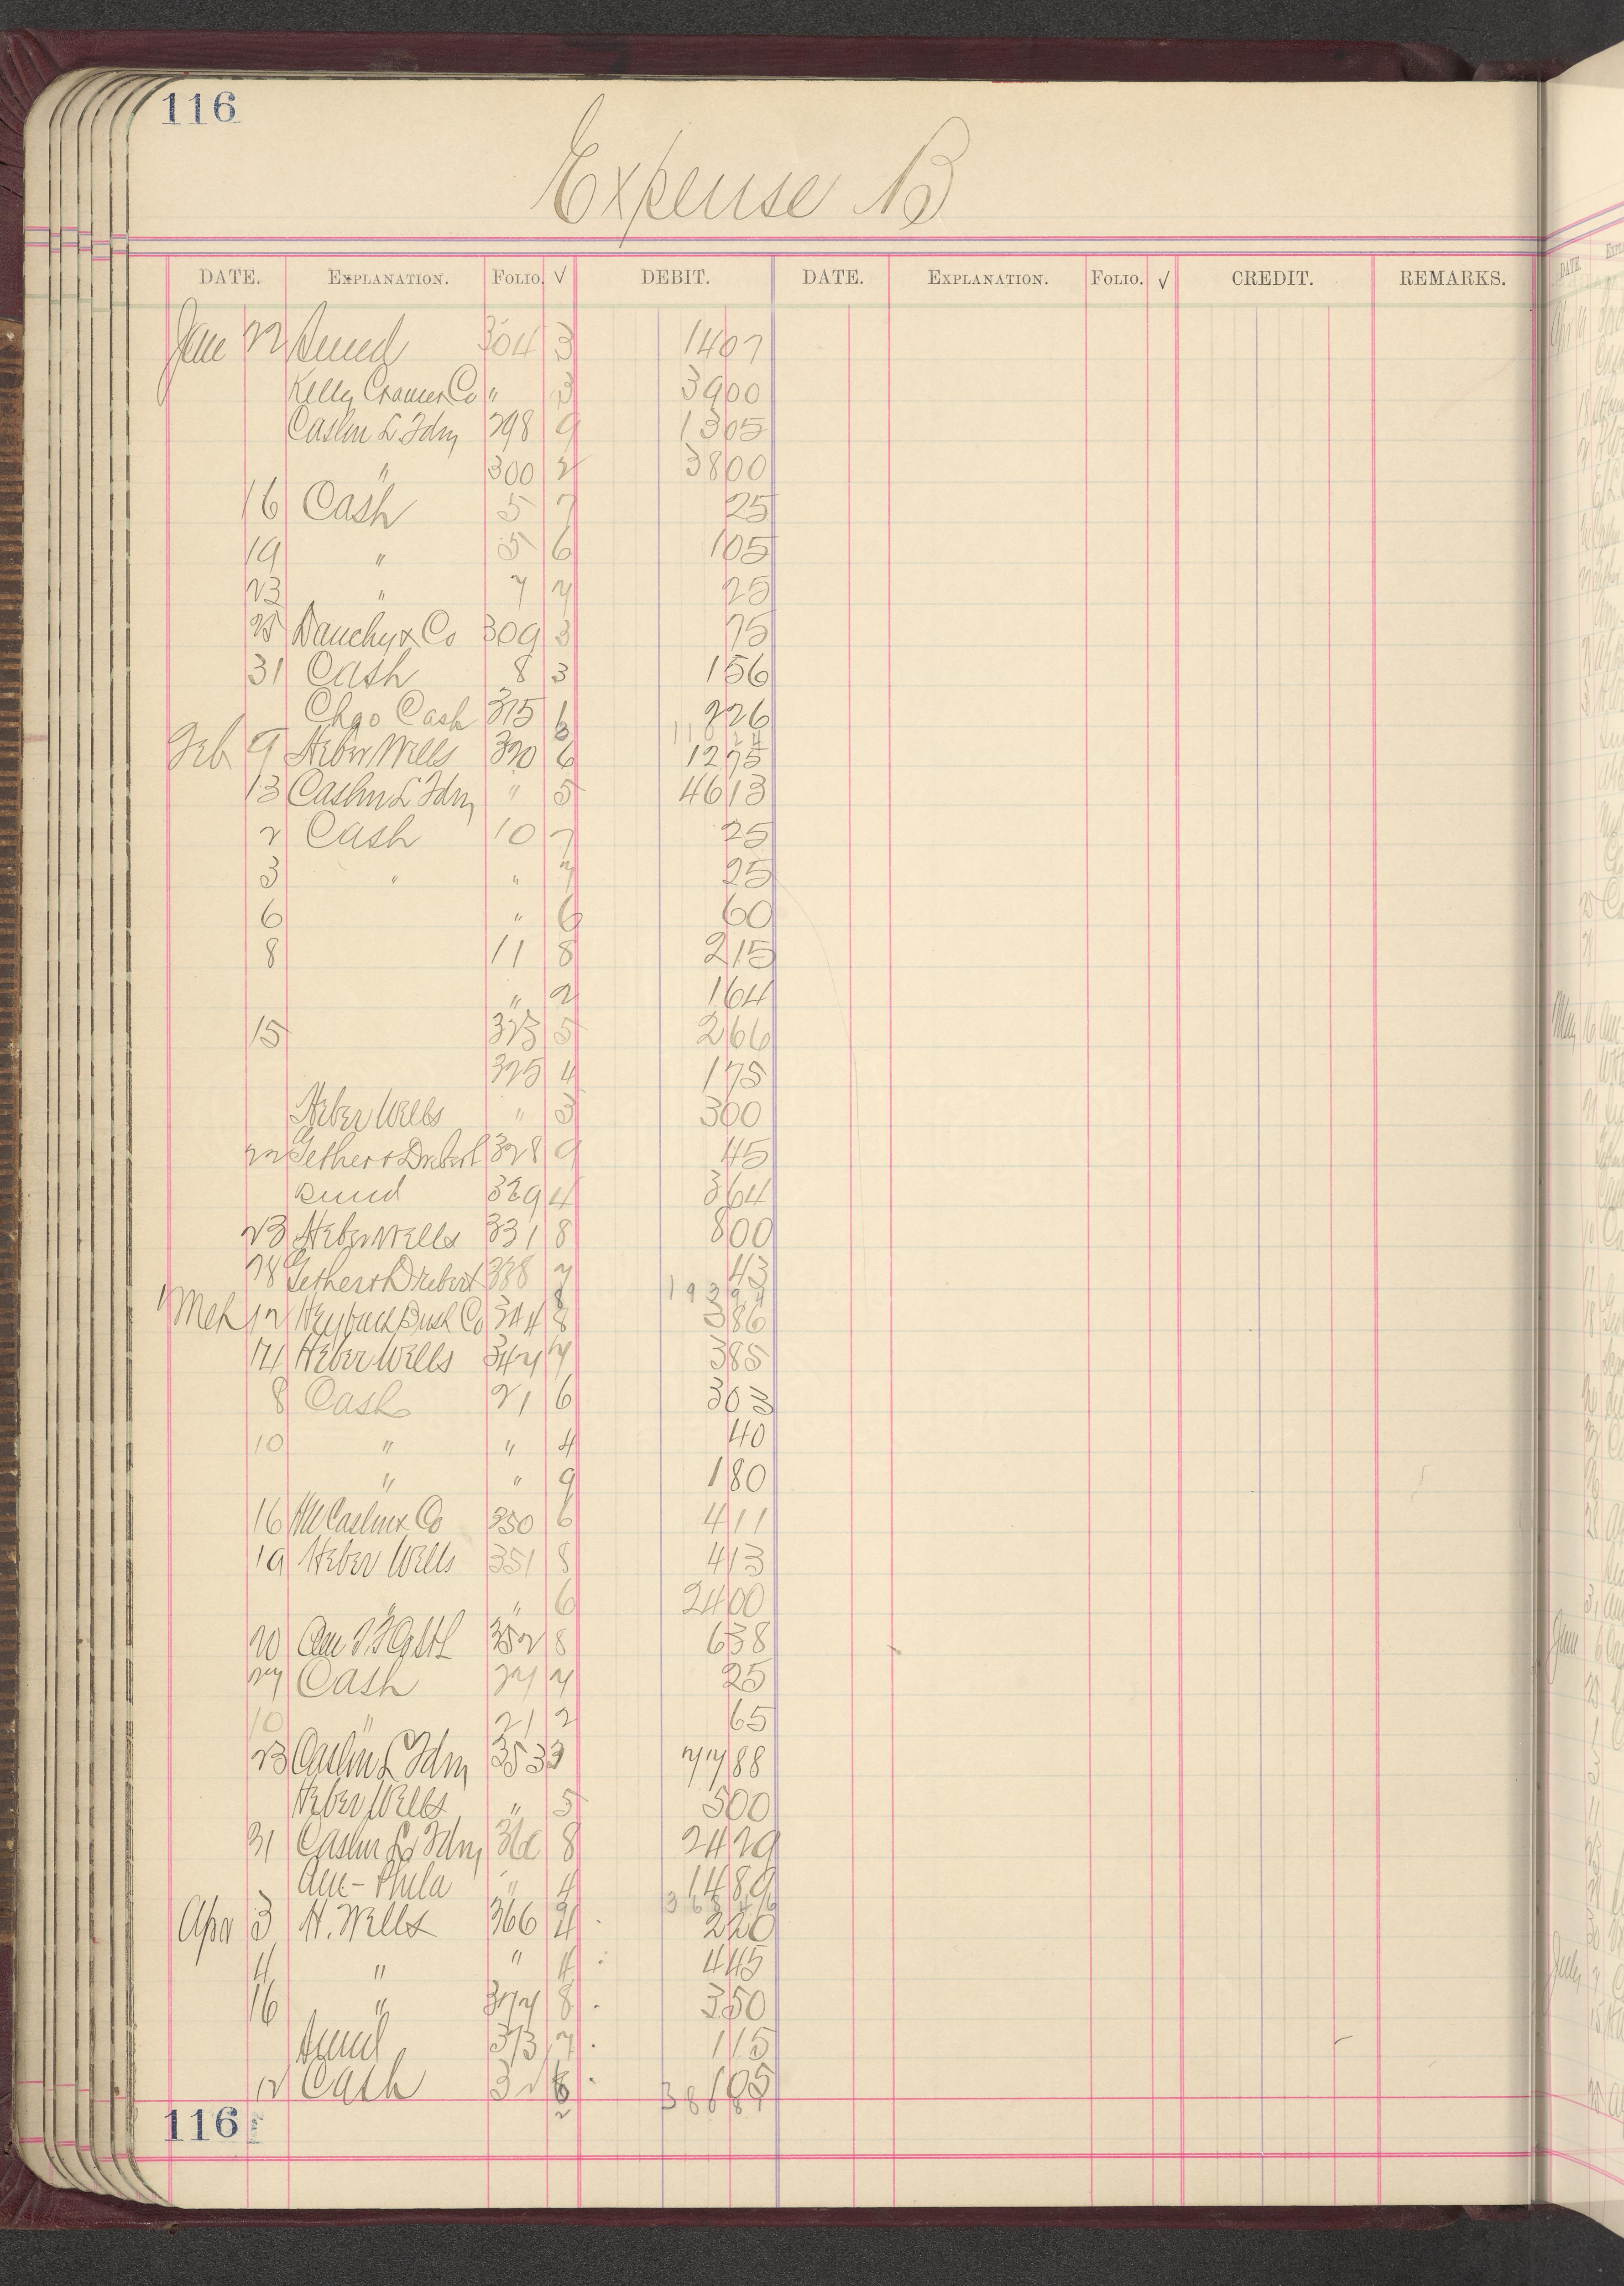 116
Expense B
DATE. EXPLANATION. FOLIO. √ DEBIT. DATE. EXPLANATION. FOLIO. √ CREDIT. REMARKS.
Jan 22 304 3 1407
Kelly Co " 3 3900
Caslon L Fdry 298 9 1305
" 300 2 3800
16 Cash 5 7 25
19 " 5 6 105
23 " 7 7 25
25 Dauchy & Co 309 3 75
31 Cash 8 3 156
Chgo Cash 315 6 226
Feb 9 Heber Wells 320 6 1275
13 Caslon L Fdry " 5 4613
2 Cash 10 7 25
3 " " 7 25
6 " 6 60
8 11 8 215
" 2 164
15 323 5 266
325 4 175
Heber Wells " 3 300
22 328 9 45
329 4 364
23 Heber Wells 331 8 800
28 338 7 43
Mch 12 Co 344 8 386
14 Heber Wells 347 7 385
8 Cash 21 6 303
10 " " 4 40
" " 9 180
16 Co 350 6 411
19 Heber Wells 351 8 413
" " 6 2400
20 352 8 638
27 Cash 27 7 25
10 " 21 2 65
23 Caslon L Fdry 353 3 7788
Heber Wells " 5 500
31 Caslon L Fdry 361 8 2429
Am - Phila " 4 1489
Apr 3 H. Wells 366 4 220
4 " " 4 445
16 " 377 8 350
373 7 115
12 Cash 32 6 105
116